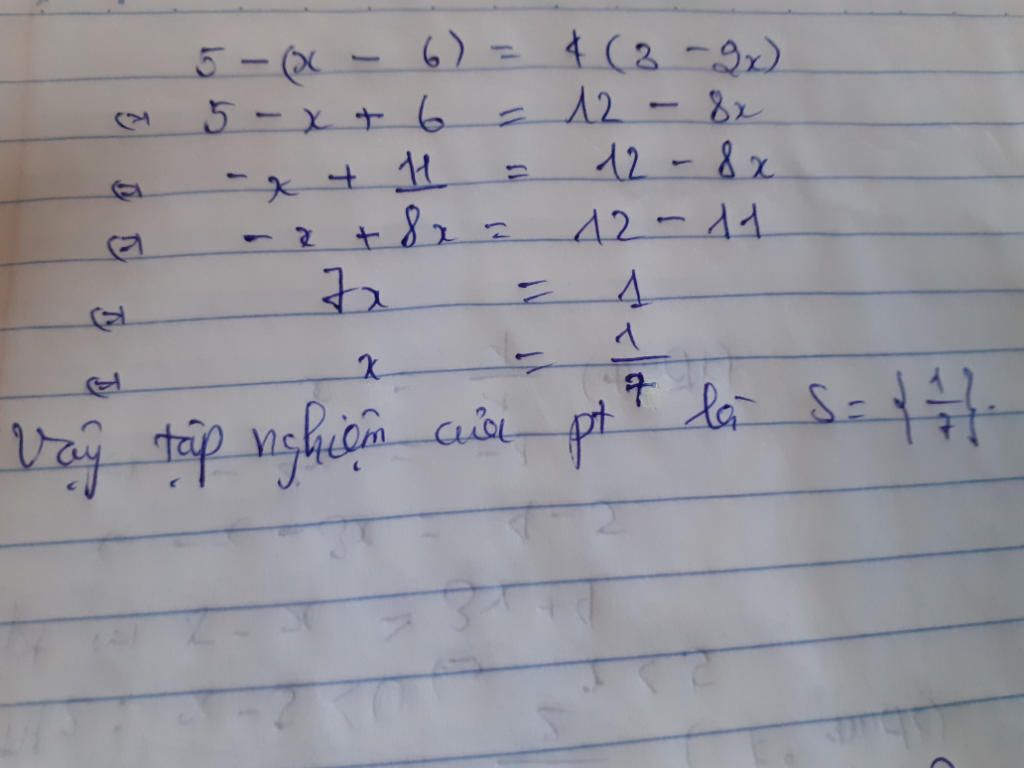 5 - (x - 6) = 4(3 - 2x)
⇔ 5 - x + 6 = 12 - 8x
⇔ - x + 11 = 12 - 8x
⇔ - x + 8x = 12 - 11
⇔ 7x = 1
⇔ x = 1/7
Vậy tập nghiệm của pt là S = {1/7}.